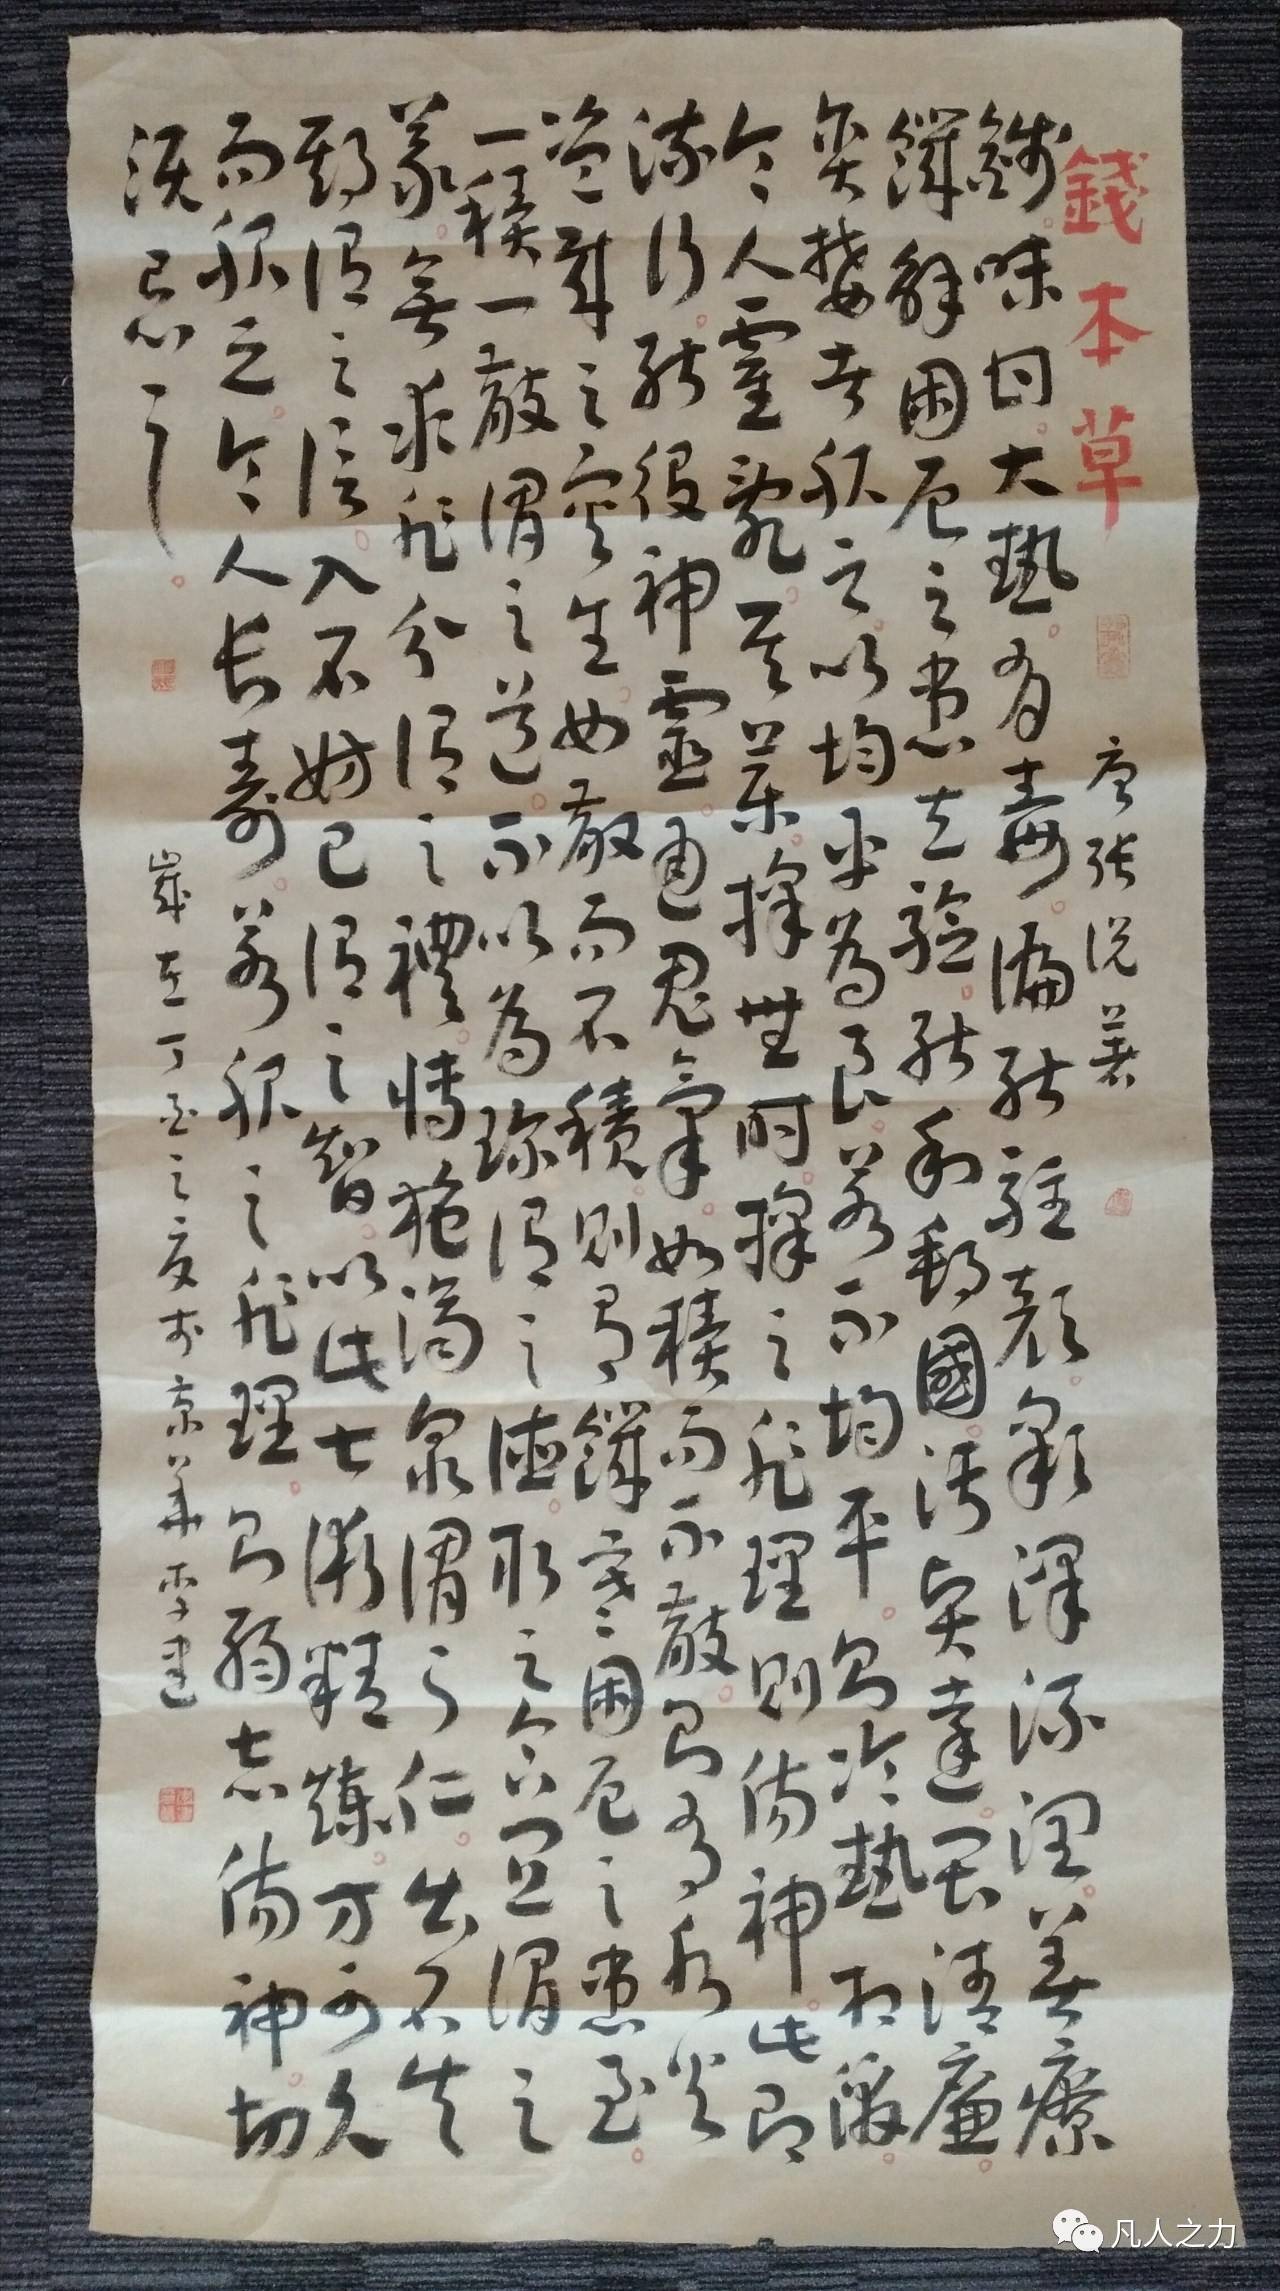 錢本草
唐張説著
錢味甘大熱有毒偏能駐顔彩澤流潤善療
饑解困厄之患立驗能利邦國污賢達畏清廉
貪婪者服之以均平為良若不均平即冷熱相激
令人霍亂其藥採無時採之非理則傷神此即
流行能役神靈通鬼氣如積而不散即有水火
盜賊之灾生如散而不積則有饑寒困厄之患至
一積一散謂之道不以為珍謂之德取之合宜謂之
義無求非分謂之禮博施濟衆謂之仁出不失
期謂之信入不妨己謂之智以此七術精煉方可久
而服之令人長壽若服之非理即弱志傷神切
須忌之
歲在丁酉之夏於京華李建
凡人之力